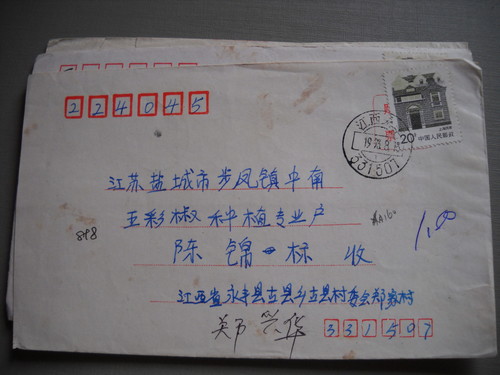 224045
20
中国人民邮政
江西
331507
江苏盐城市步凤镇中南
五彩椒种植专业户
898
陈锦标 收
1,00
江西省永丰县古县乡古县村委会郑家村
郑兴华
331507